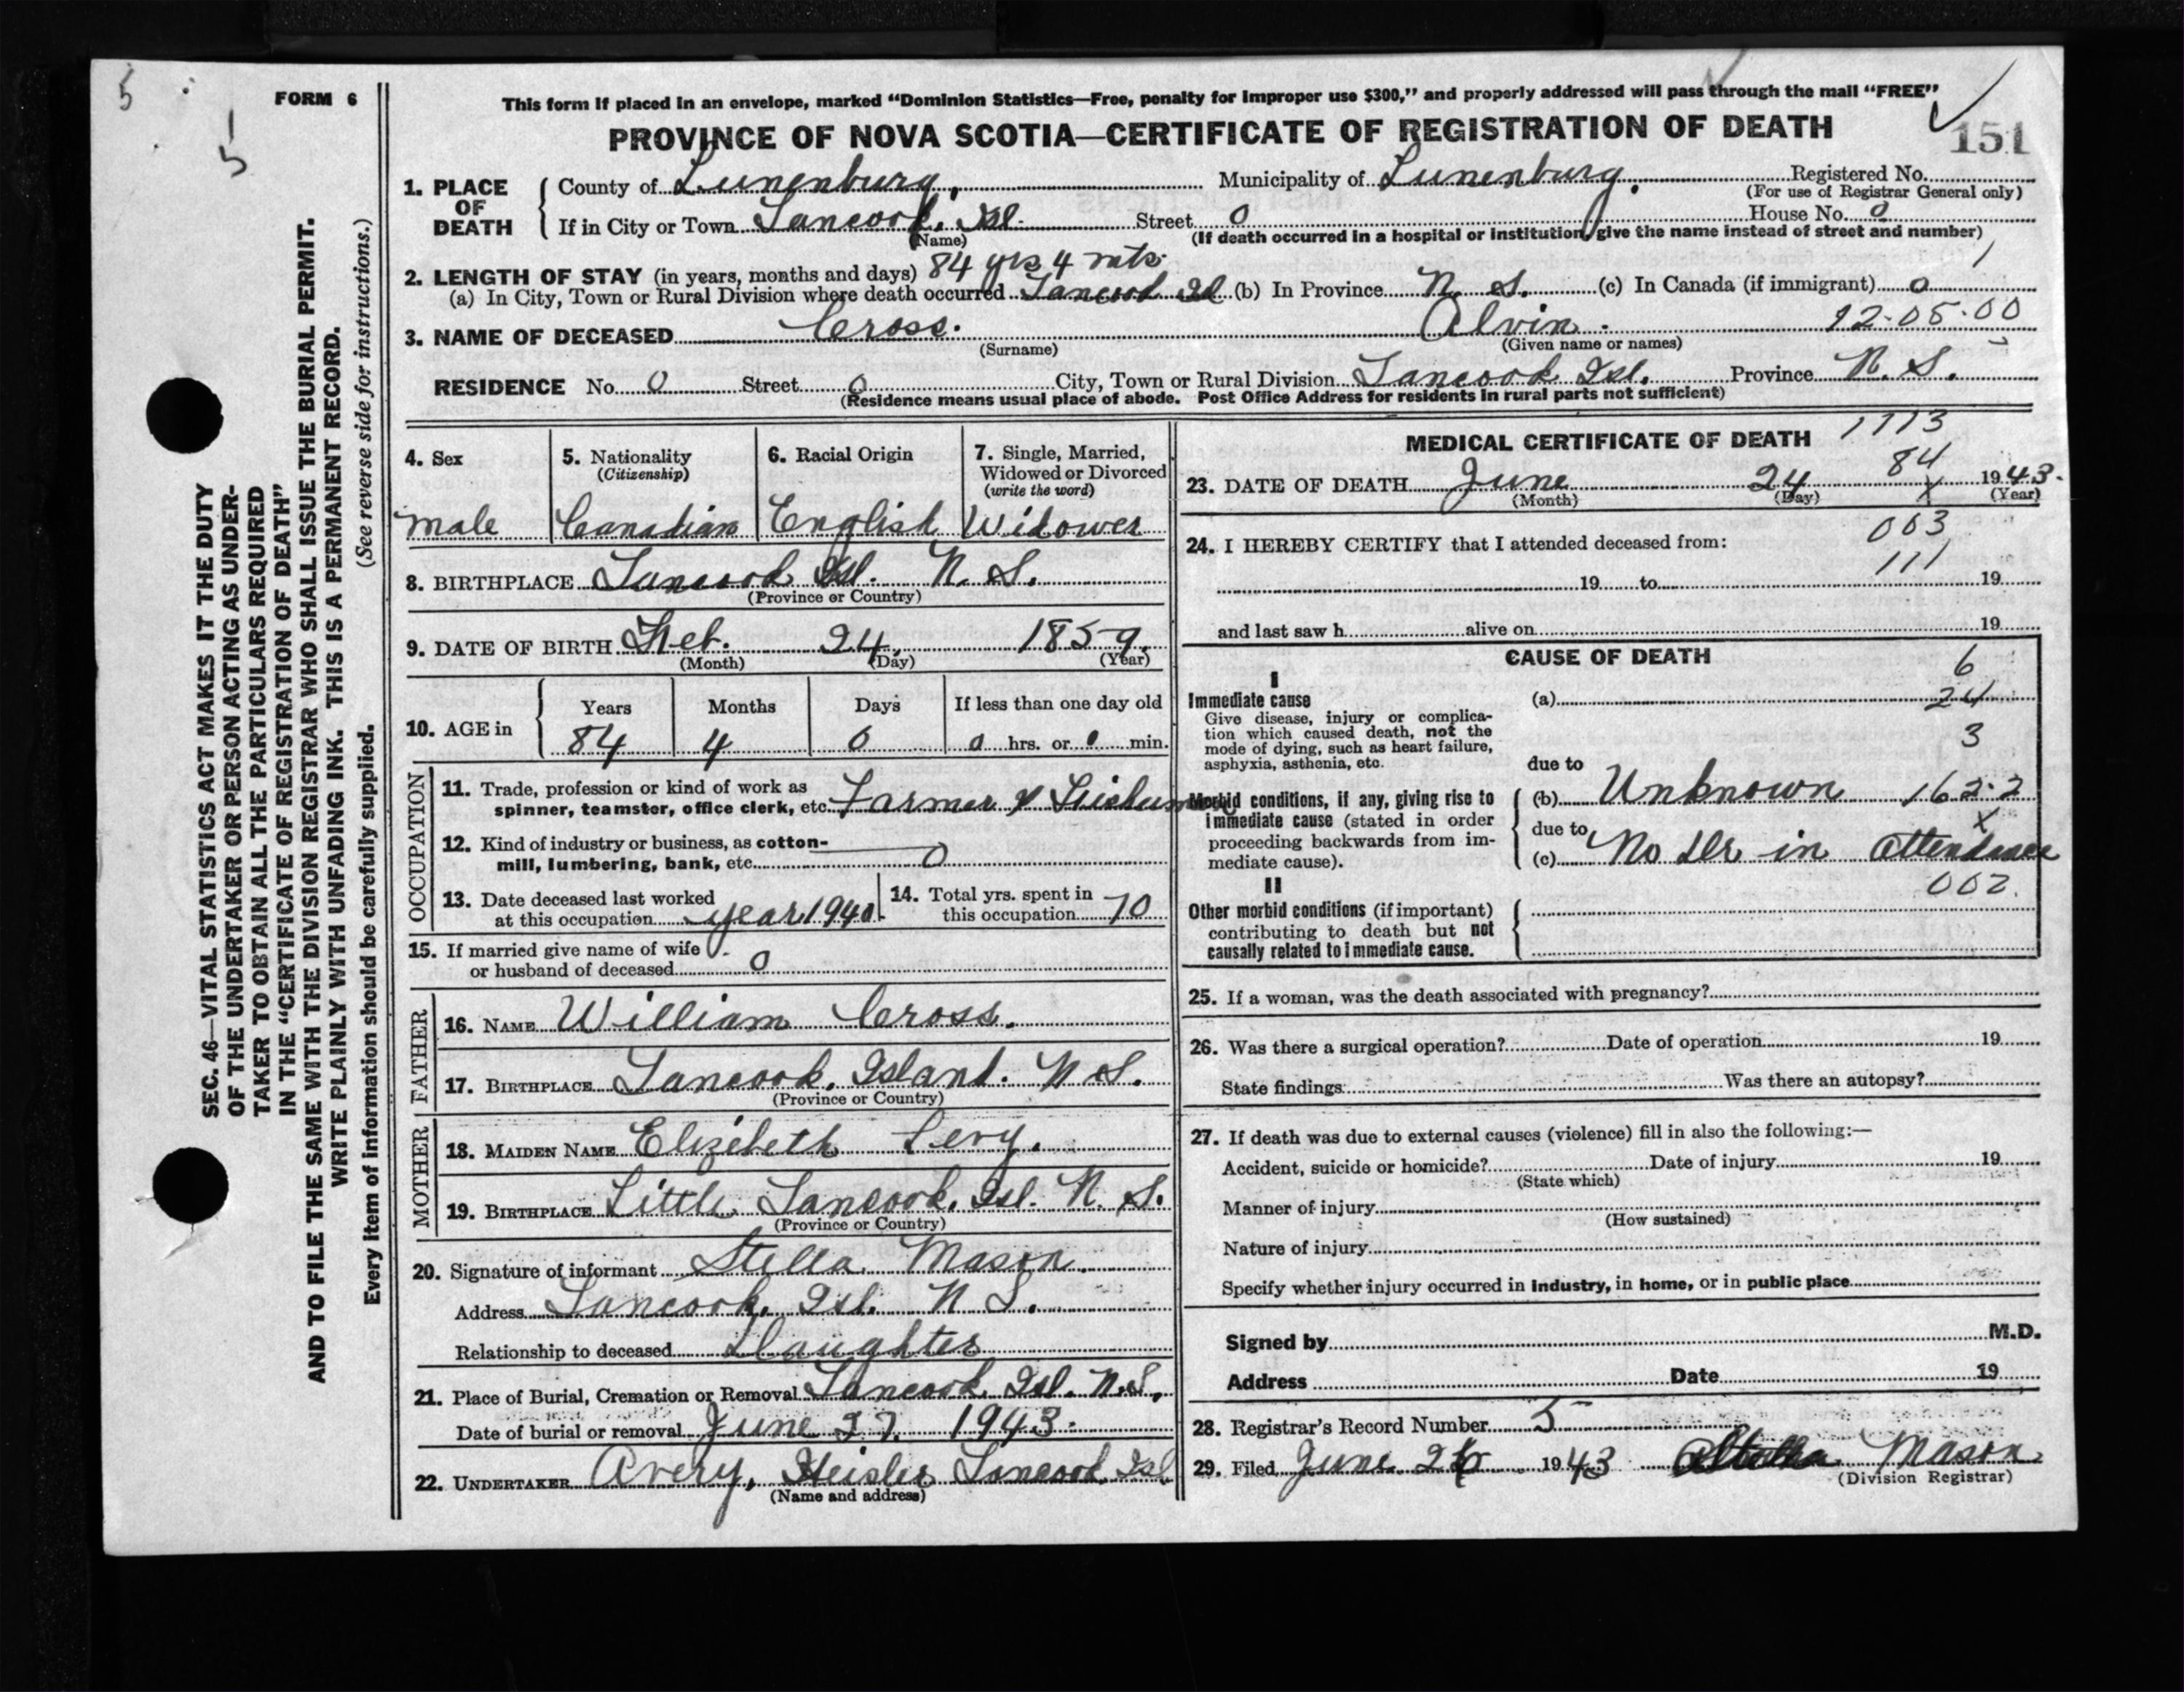 5
5
FORM 6
This form if placed in an envelope, marked "Dominion Statistics—Free, penalty for improper use $300," and properly addressed will pass through the mail "FREE"
PROVINCE OF NOVA SCOTIA—CERTIFICATE OF REGISTRATION OF DEATH
151
1. PLACE OF DEATH
County of Lunenburg. Municipality of Lunenburg. Registered No.
(For use of Registrar General only)
If in City or Town Tancook. Isl. Street 0 House No. 0
(Name) (If death occurred in a hospital or institution, give the name instead of street and number)
2. LENGTH OF STAY (in years, months and days) 84 yrs 4 mts.
(a) In City, Town or Rural Division where death occurred Tancook Isl (b) In Province N. S. (c) In Canada (if immigrant) 0
3. NAME OF DECEASED Cross. Alvin. 12-05-00
(Surname) (Given name or names)
RESIDENCE No. 0 Street 0 City, Town or Rural Division Tancook Isl. Province N. S.
(Residence means usual place of abode. Post Office Address for residents in rural parts not sufficient)
4. Sex
male
5. Nationality
(Citizenship)
Canadian
6. Racial Origin
English
7. Single, Married,
Widowed or Divorced
(write the word)
Widower
8. BIRTHPLACE Tancook Isl. N. S.
(Province or Country)
9. DATE OF BIRTH Feb. 24, 1859.
(Month) (Day) (Year)
10. AGE in
Years Months Days If less than one day old
84 4 0 0 hrs. or 0 min.
OCCUPATION
11. Trade, profession or kind of work as
spinner, teamster, office clerk, etc. Farmer & Fisherman
12. Kind of industry or business, as cotton-
mill, lumbering, bank, etc. 0
13. Date deceased last worked
at this occupation year 1940.
14. Total yrs. spent in
this occupation 70
15. If married give name of wife
or husband of deceased 0
FATHER
16. NAME William Cross.
17. BIRTHPLACE Tancook. Island. N S.
(Province or Country)
MOTHER
18. MAIDEN NAME Elizebeth Levy.
19. BIRTHPLACE Little Tancook. Isl. N. S.
(Province or Country)
20. Signature of informant Stella Mason.
Address Tancook. Isl. N S.
Relationship to deceased Daughter
21. Place of Burial, Cremation or Removal Tancook Isl. N.S.
Date of burial or removal June 27. 1943.
22. UNDERTAKER Avery, Heisler Tancook Isl
(Name and address)
MEDICAL CERTIFICATE OF DEATH 1713
84
23. DATE OF DEATH June 24 X 1943.
(Month) (Day) (Year)
003
24. I HEREBY CERTIFY that I attended deceased from:
111
19 to 19
and last saw h alive on 19
CAUSE OF DEATH
6
I
Immediate cause
Give disease, injury or complica-
tion which caused death, not the
mode of dying, such as heart failure,
asphyxia, asthenia, etc.
(a) 24
3
due to
Morbid conditions, if any, giving rise to
immediate cause (stated in order
proceeding backwards from im-
mediate cause).
(b) Unknown 162.2
X
due to
(c) No Dr in attendance
002.
II
Other morbid conditions (if important)
contributing to death but not
causally related to immediate cause.
25. If a woman, was the death associated with pregnancy?
26. Was there a surgical operation? Date of operation 19
State findings Was there an autopsy?
27. If death was due to external causes (violence) fill in also the following:—
Accident, suicide or homicide? Date of injury 19
(State which)
Manner of injury
(How sustained)
Nature of injury
Specify whether injury occurred in industry, in home, or in public place
Signed by M.D.
Address Date 19
28. Registrar's Record Number 5
29. Filed June 26 1943 Stella Mason
(Division Registrar)
SEC. 46—VITAL STATISTICS ACT MAKES IT THE DUTY
OF THE UNDERTAKER OR PERSON ACTING AS UNDER-
TAKER TO OBTAIN ALL THE PARTICULARS REQUIRED
IN THE "CERTIFICATE OF REGISTRATION OF DEATH"
AND TO FILE THE SAME WITH THE DIVISION REGISTRAR WHO SHALL ISSUE THE BURIAL PERMIT.
WRITE PLAINLY WITH UNFADING INK. THIS IS A PERMANENT RECORD.
Every item of information should be carefully supplied. (See reverse side for instructions.)